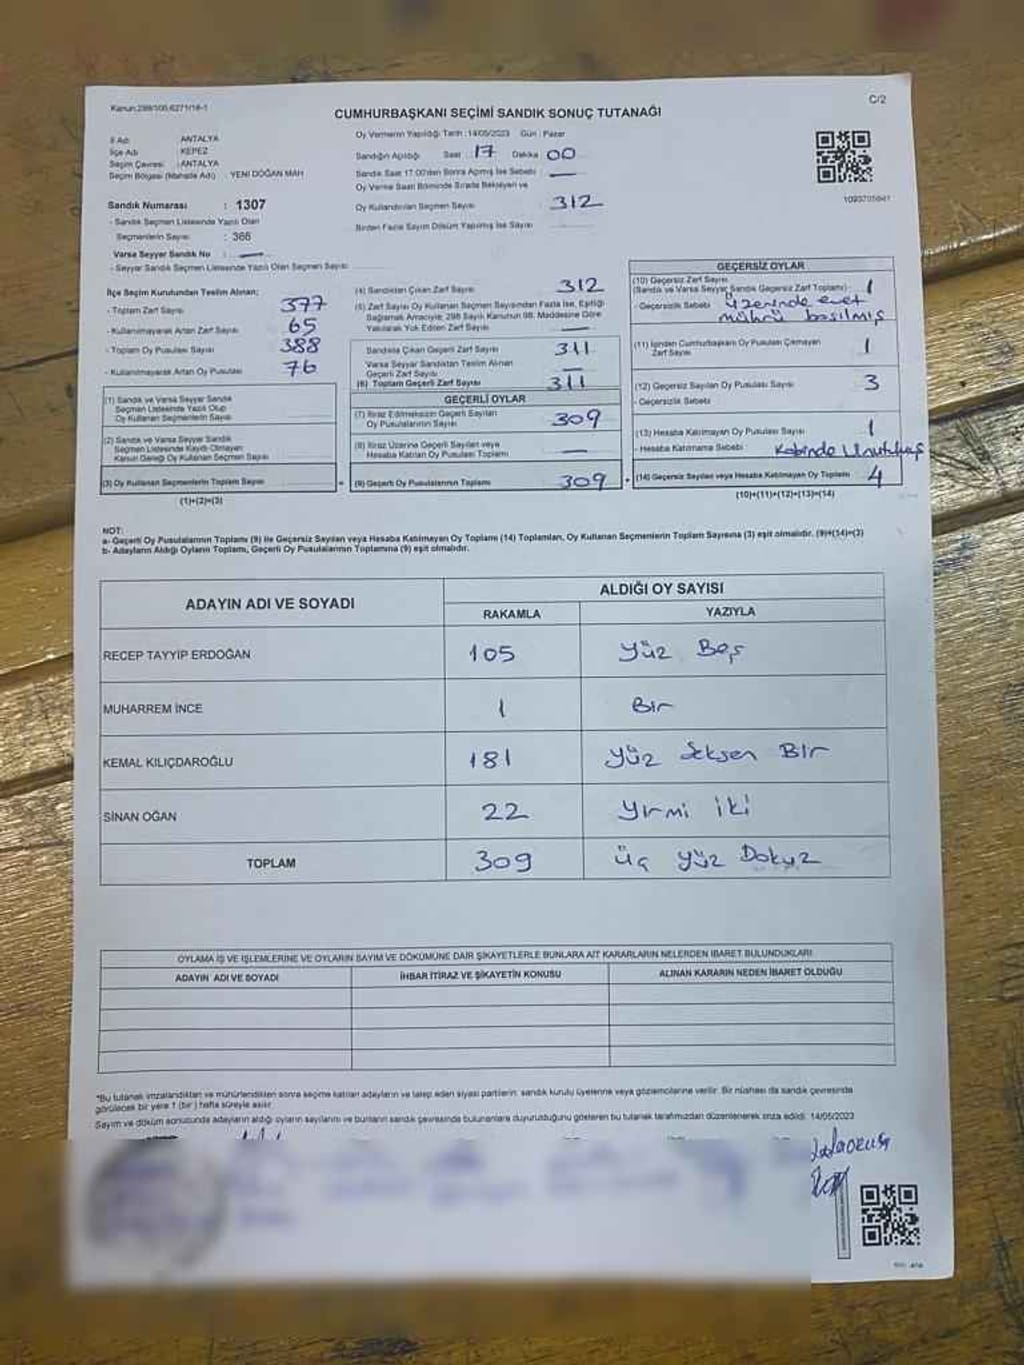 Kanun:298/105,6271/16-1
C/2
CUMHURBAŞKANI SEÇİMİ SANDIK SONUÇ TUTANAĞI
İl Adı : ANTALYA
İlçe Adı : KEPEZ
Seçim Çevresi : ANTALYA
Seçim Bölgesi (Mahalle Adı) : YENİ DOĞAN MAH
Sandık Numarası : 1307
- Sandık Seçmen Listesinde Yazılı Olan
Seçmenlerin Sayısı : 366
Varsa Seyyar Sandık No :
- Seyyar Sandık Seçmen Listesinde Yazılı Olan Seçmen Sayısı
Oy Vermenin Yapıldığı Tarih : 14/05/2023 Gün : Pazar
Sandığın Açıldığı Saat : 17 Dakika 00
Sandık Saat 17:00'den Sonra Açılmış İse Sebebi :
Oy Verme Saati Bitiminde Sırada Bekleyen ve
Oy Kullandırılan Seçmen Sayısı 312
Birden Fazla Sayım Döküm Yapılmış İse Sayısı
İlçe Seçim Kurulundan Teslim Alınan;
- Toplam Zarf Sayısı 377
- Kullanılmayarak Artan Zarf Sayısı 65
- Toplam Oy Pusulası Sayısı 388
- Kullanılmayarak Artan Oy Pusulası 76
(1) Sandık ve Varsa Seyyar Sandık
Seçmen Listesinde Yazılı Olup
Oy Kullanan Seçmenlerin Sayısı
(2) Sandık ve Varsa Seyyar Sandık
Seçmen Listesinde Kayıtlı Olmayan
Kanun Gereği Oy Kullanan Seçmen Sayısı
(3) Oy Kullanan Seçmenlerin Toplam Sayısı
(1)+(2)=(3)
(4) Sandıktan Çıkan Zarf Sayısı 312
(5) Zarf Sayısı Oy Kullanan Seçmen Sayısından Fazla İse, Eşitliği
Sağlamak Amacıyla; 298 Sayılı Kanunun 98. Maddesine Göre
Yakılarak Yok Edilen Zarf Sayısı
Sandıkla Çıkan Geçerli Zarf Sayısı 311
Varsa Seyyar Sandıktan Teslim Alınan
Geçerli Zarf Sayısı
(6) Toplam Geçerli Zarf Sayısı 311
GEÇERLİ OYLAR
(7) İtiraz Edilmeksizin Geçerli Sayılan
Oy Pusulalarının Sayısı 309
(8) İtiraz Üzerine Geçerli Sayılan veya
Hesaba Katılan Oy Pusulası Toplamı
(9) Geçerli Oy Pusulalarının Toplamı 309
GEÇERSİZ OYLAR
(10) Geçersiz Zarf Sayısı
(Sandık ve Varsa Seyyar Sandık Geçersiz Zarf Toplamı) : 1
- Geçersizlik Sebebi üzerinde evet
mührü basılmış
(11) İçinden Cumhurbaşkanı Oy Pusulası Çıkmayan
Zarf Sayısı 1
(12) Geçersiz Sayılan Oy Pusulası Sayısı 3
- Geçersizlik Sebebi
(13) Hesaba Katılmayan Oy Pusulası Sayısı 1
- Hesaba Katılmama Sebebi Kabinde Unutulmuş
(14) Geçersiz Sayılan veya Hesaba Katılmayan Oy Toplamı 4
(10)+(11)+(12)+(13)=(14)
1093705941
NOT:
a- Geçerli Oy Pusulalarının Toplamı (9) ile Geçersiz Sayılan veya Hesaba Katılmayan Oy Toplamı (14) Toplamları, Oy Kullanan Seçmenlerin Toplam Sayısına (3) eşit olmalıdır. (9)+(14)=(3)
b- Adayların Aldığı Oyların Toplamı, Geçerli Oy Pusulalarının Toplamına (9) eşit olmalıdır.
ADAYIN ADI VE SOYADI ALDIĞI OY SAYISI
RAKAMLA YAZIYLA
RECEP TAYYİP ERDOĞAN 105 Yüz Beş
MUHARREM İNCE 1 Bir
KEMAL KILIÇDAROĞLU 181 Yüz Seksen Bir
SİNAN OĞAN 22 Yirmi iki
TOPLAM 309 üç yüz Dokuz
OYLAMA İŞ VE İŞLEMLERİNE VE OYLARIN SAYIM VE DÖKÜMÜNE DAİR ŞİKAYETLERLE BUNLARA AİT KARARLARIN NELERDEN İBARET BULUNDUKLARI
ADAYIN ADI VE SOYADI İHBAR İTİRAZ VE ŞİKAYETİN KONUSU ALINAN KARARIN NEDEN İBARET OLDUĞU
*Bu tutanak imzalandıktan ve mühürlendikten sonra seçime katılan adayların ve talep eden siyasi partilerin, sandık kurulu üyelerine veya gözlemcilerine verilir. Bir nüshası da sandık çevresinde
görülecek bir yere 1 (bir) hafta süreyle asılır.
Sayım ve döküm sonucunda adayların aldığı oyların sayılarını ve bunların sandık çevresinde bulunanlara duyurulduğunu gösteren bu tutanak tarafımızdan düzenlenerek imza edildi. 14/05/2023